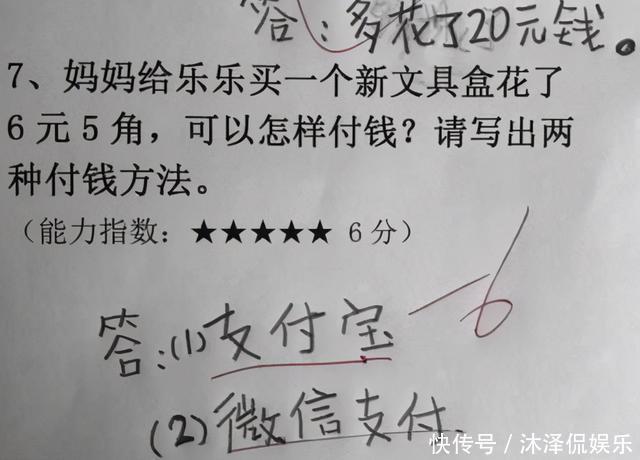 答：多花了20元钱。
7、妈妈给乐乐买一个新文具盒花了
6元5角，可以怎样付钱？请写出两
种付钱方法。
（能力指数：★★★★★ 6分）
答：(1)支付宝 -6
(2)微信支付.
快传号／沐泽侃娱乐